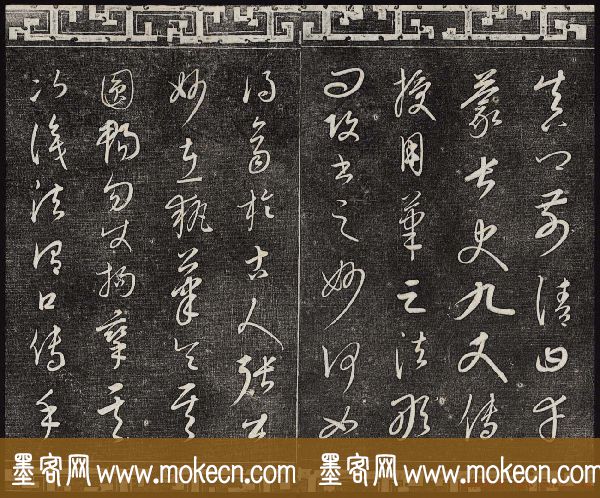 真卿前請曰幸
蒙長史九丈傳
授用筆之法敢
問攻書之妙何如
得齊於古人張
妙在執筆令其
圓暢勿使拘攣其
次識法謂口傳手
墨客网 www.mokecn.com
墨客网 www.mokecn.com